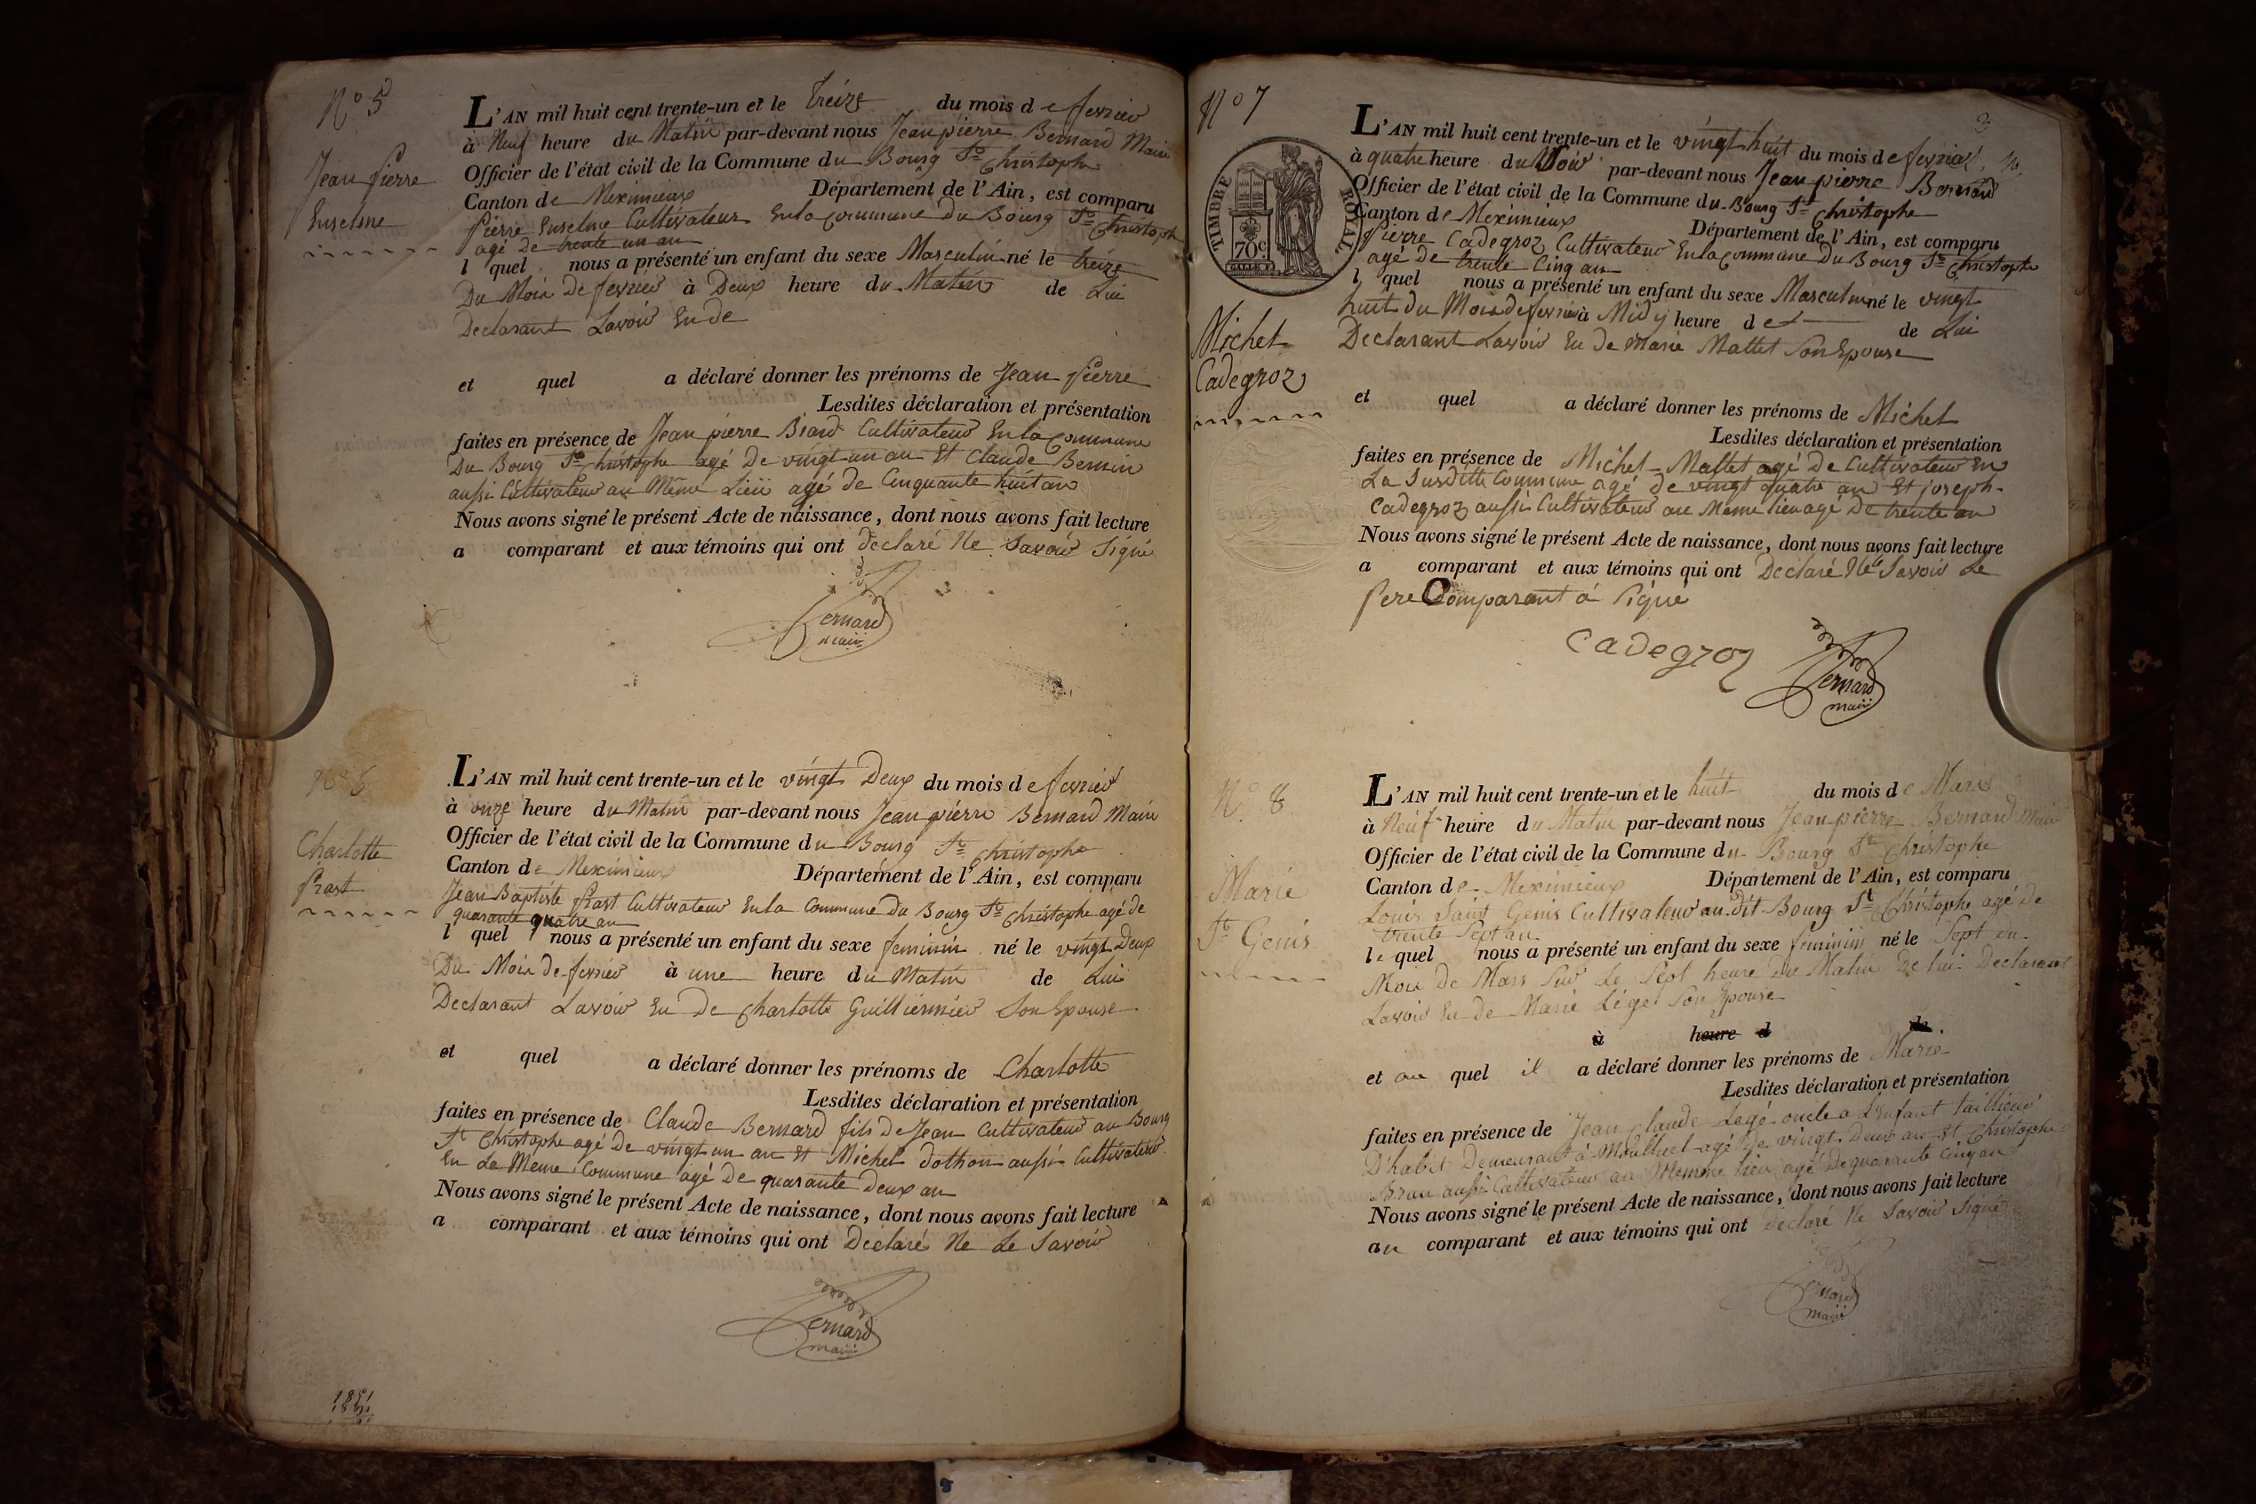 N° 5
Jean pierre
Enselme
L'AN mil huit cent trente-un et le treize du mois de fevrier
à Neuf heure du Matin par-devant nous Jean pierre Bernard Maire
Officier de l'état civil de la Commune du Bourg St Christophe
Canton de Meximieux Département de l'Ain, est comparu
Pierre Enselme Cultivateur En la Commune du Bourg St Christophe
agé de trente un an
l quel nous a présenté un enfant du sexe Masculin né le treize
Du Moia De fevrier à Deux heure du Matin de Lui
Declarant Lavoir Eu de
et quel a déclaré donner les prénoms de Jean Pierre
Lesdites déclaration et présentation
faites en présence de Jean pierre Biard Cultivateur En la Commune
Du Bourg St Christophe agé De vingt un an Et Claude Bernin
aussi Cultivateur au Même Lieu agé de Cinquante huit an
Nous avons signé le présent Acte de naissance, dont nous avons fait lecture
a comparant et aux témoins qui ont declaré Ne Savoir Signé
Bernard
maire
N° 6
Charlotte
Prast
L'AN mil huit cent trente-un et le vingt Deux du mois de fevrier
à onze heure du Matin par-devant nous Jean pierre Bernard Maire
Officier de l'état civil de la Commune du Bourg St Christophe
Canton de Meximieux Département de l'Ain, est comparu
Jean Baptiste Prast Cultivateur En la Commune Du Bourg St Christophe agé de
quarante quatre an
l quel nous a présenté un enfant du sexe feminin né le vingt Deux
Du Moia de fevrier à une heure du Matin de Lui
Declarant Lavoir Eu De Charlotte Guilliermier Son Epouse
et quel a déclaré donner les prénoms de Charlotte
Lesdites déclaration et présentation
faites en présence de Claude Bernard fils de Jean Cultivateur au Bourg
St Christophe agé De vingt un an Et Michel dothon aussi Cultivateur
En La Meme Commune agé De quarante Deux an
Nous avons signé le présent Acte de naissance, dont nous avons fait lecture
a comparant et aux témoins qui ont Declaré Ne Le Savoir
Bernard
maire
1831
N° 7
TIMBRE ROYAL
70c
Michel
Cadegroz
3
L'AN mil huit cent trente-un et le vingt huit du mois de fevrier
à quatre heure du Soir par-devant nous Jean pierre Bernard
Officier de l'état civil de la Commune du Bourg St Christophe
Canton de Meximieux Département de l'Ain, est comparu
Pierre Cadegroz Cultivateur En la Commune Du Bourg St Christophe
agé de trente Cinq an
l quel nous a présenté un enfant du sexe Masculin né le vingt
huit du Moia de fevrier à Midy heure de de Lui
Declarant Lavoir Eu De Marie Mallet Son Epouse
et quel a déclaré donner les prénoms de Michel
Lesdites déclaration et présentation
faites en présence de Michel Mallet agé De Cultivateur En
La Susditte Commune agé de vingt quatre an Et joseph
Cadegroz aussi Cultivateur au Meme lieu agé De trente an
Nous avons signé le présent Acte de naissance, dont nous avons fait lecture
a comparant et aux témoins qui ont Declaré Ne Savoir Le
Pere Comparant à Signé
Cadegroz
Bernard
maire
N° 8
Marie
St Genis
L'AN mil huit cent trente-un et le huit du mois de Mars
à Neuf heure du Matin par-devant nous Jean pierre Bernard Maire
Officier de l'état civil de la Commune du Bourg St Christophe
Canton de Meximieux Département de l'Ain, est comparu
Louis Saint Genis Cultivateur au dit Bourg St Christophe agé de
trente Sept an
le quel nous a présenté un enfant du sexe feminin né le Sept du
Moi De Mars Sur Le Sept heure Du Matin De lui Declarant
Lavoir Eu De Marie Légé Son Epouse
à heure d de
et au quel il a déclaré donner les prénoms de Marie
Lesdites déclaration et présentation
faites en présence de Jean Claude Legé oncle a L'enfant tailleur
D'habit Demeurant à Montluel agé De vingt Deux an Et Christophe
Brun aussi Cultivateur au Memme lieu agé De quarante Cinq an
Nous avons signé le présent Acte de naissance, dont nous avons fait lecture
au comparant et aux témoins qui ont declaré Ne Savoir Signé
Bernard
maire